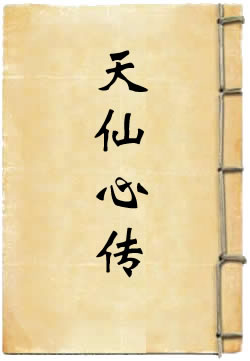 天仙心传